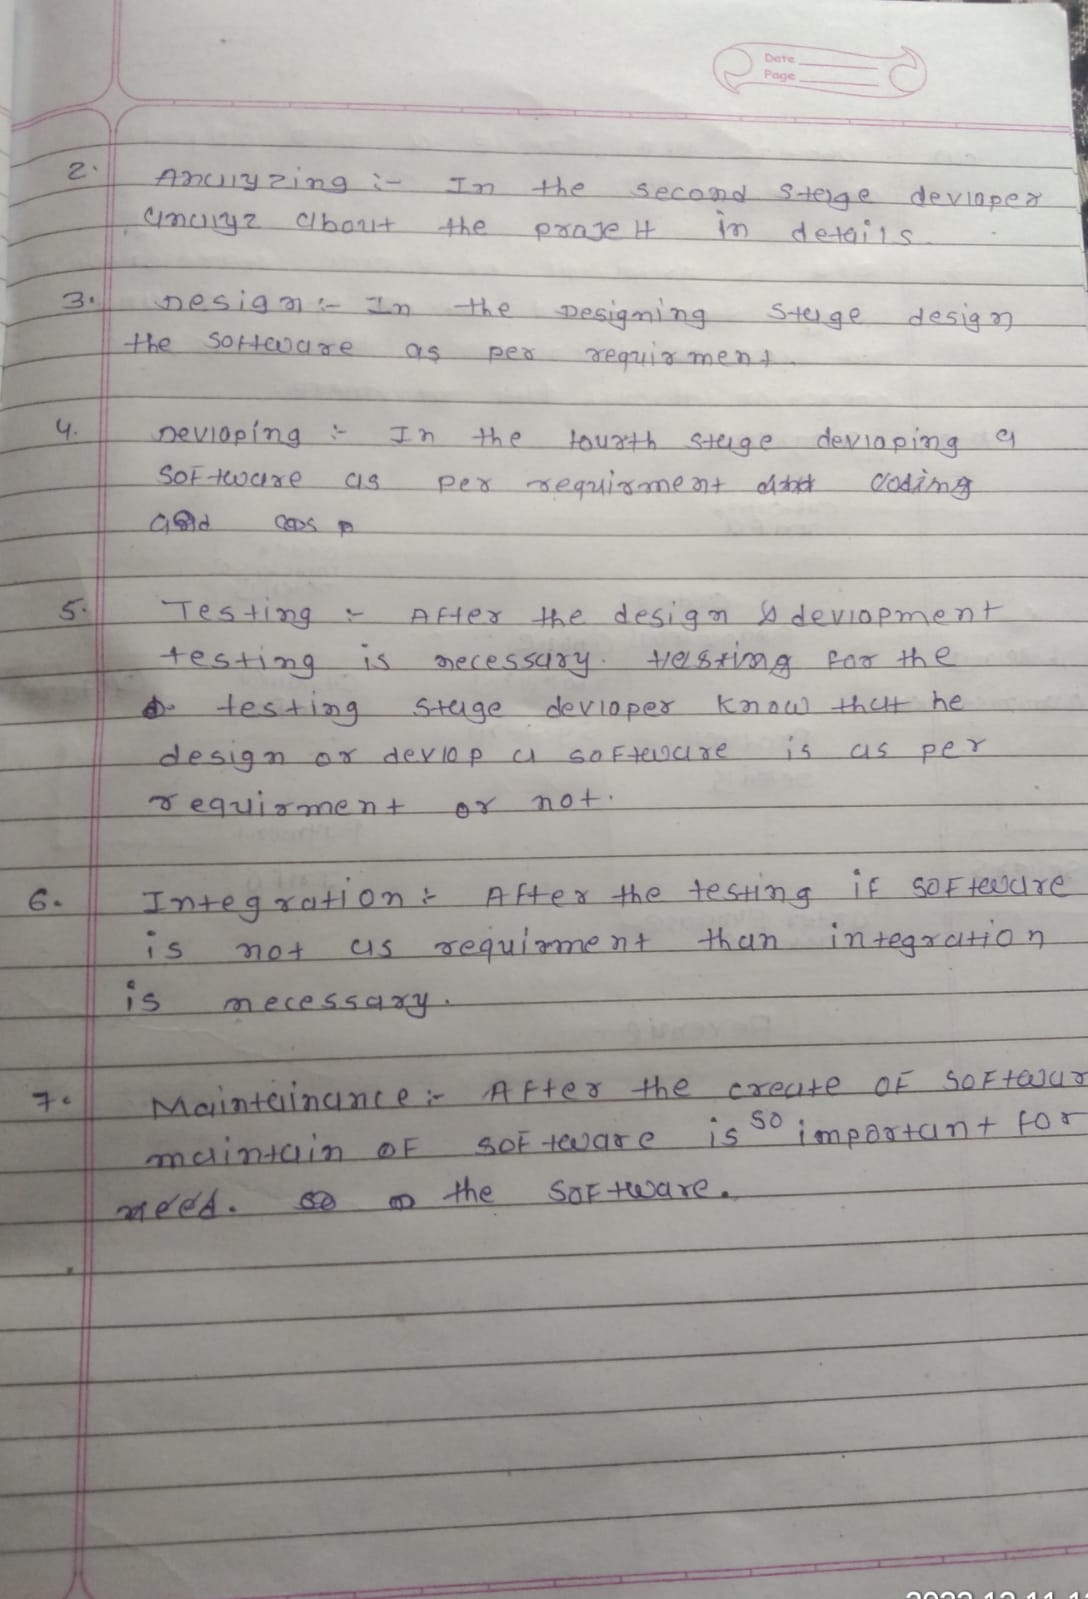 Date
Page
2. Analyzing :- In the second stage devloper
analyz about the project in details.
3. Design :- In the Designing stage design
the software as per requirment.
4. Devloping :- In the fourth stage devloping a
software as per requirment coding
and as p
5. Testing :- After the design & devlopment
testing is necessary. testing for the
testing stage devloper know that he
design or devlop a software is as per
requirment or not.
6. Integration :- After the testing if software
is not as requirment than integration
is necessary.
7. Maintainance :- After the create of softwar
maintain of software is so important for
need. the software.